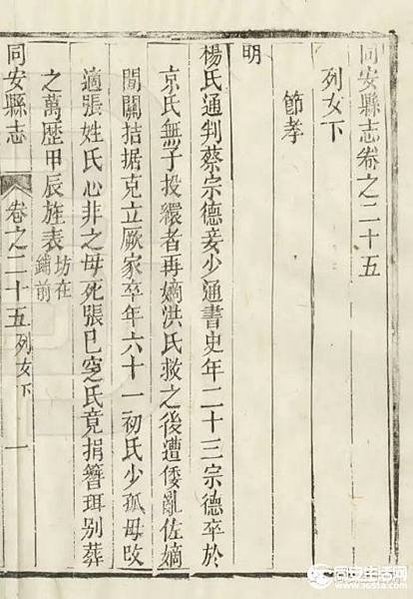 同安縣志卷之二十五
列女下
節孝
明
楊氏通判蔡宗德妾少通書史年二十三宗德卒於
京氏無子投繯者再嫡洪氏救之後遭倭亂佐嫡
間關拮据克立厥家卒年六十一初氏少孤母改
適張姓氏心非之母死張已窆氏竟捐簪珥别葬
之萬歷甲辰旌表坊在
鋪前
同安縣志
卷之二十五 列女下
一
同安生活网